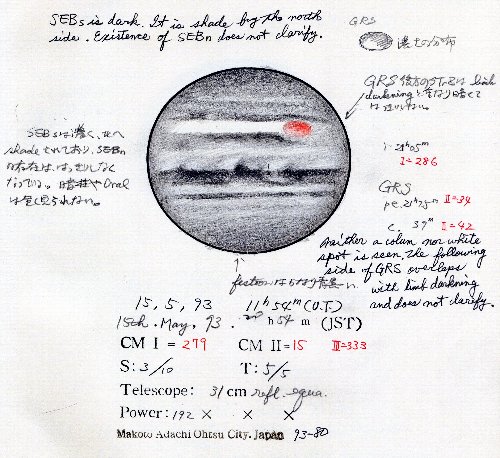 SEBs is dark. It is shade by the north
side. Existence of SEBn does not clarify.
GRS
濃さの分布
GRS 後方のSTrZは limb
darkningと重なり暗くて
はっきりしない。
SEBsは濃く、北へ
shadeされており、SEBn
の存在は、はっきりしなく
なっている。暗柱やOval
は全く見られない。
I=286
GRS
pe. 21h25m II=34
c. 39m II=42
Neither a colum nor white
spot is seen. The following
side of GRS overlaps
with limb darkning
and does not clarify.
festoonはかなり青黒い
15, 5, 93 11h 54m (U.T.)
15th. May. 93. 20h 54 m (JST)
CM I = 279 CM II = 15 III=333
S: 3/10 T: 5/5
Telescope: 31 cm refl. equa.
Power: 192 × . × . ×
Makoto Adachi Ohtsu City. Japan 93-80